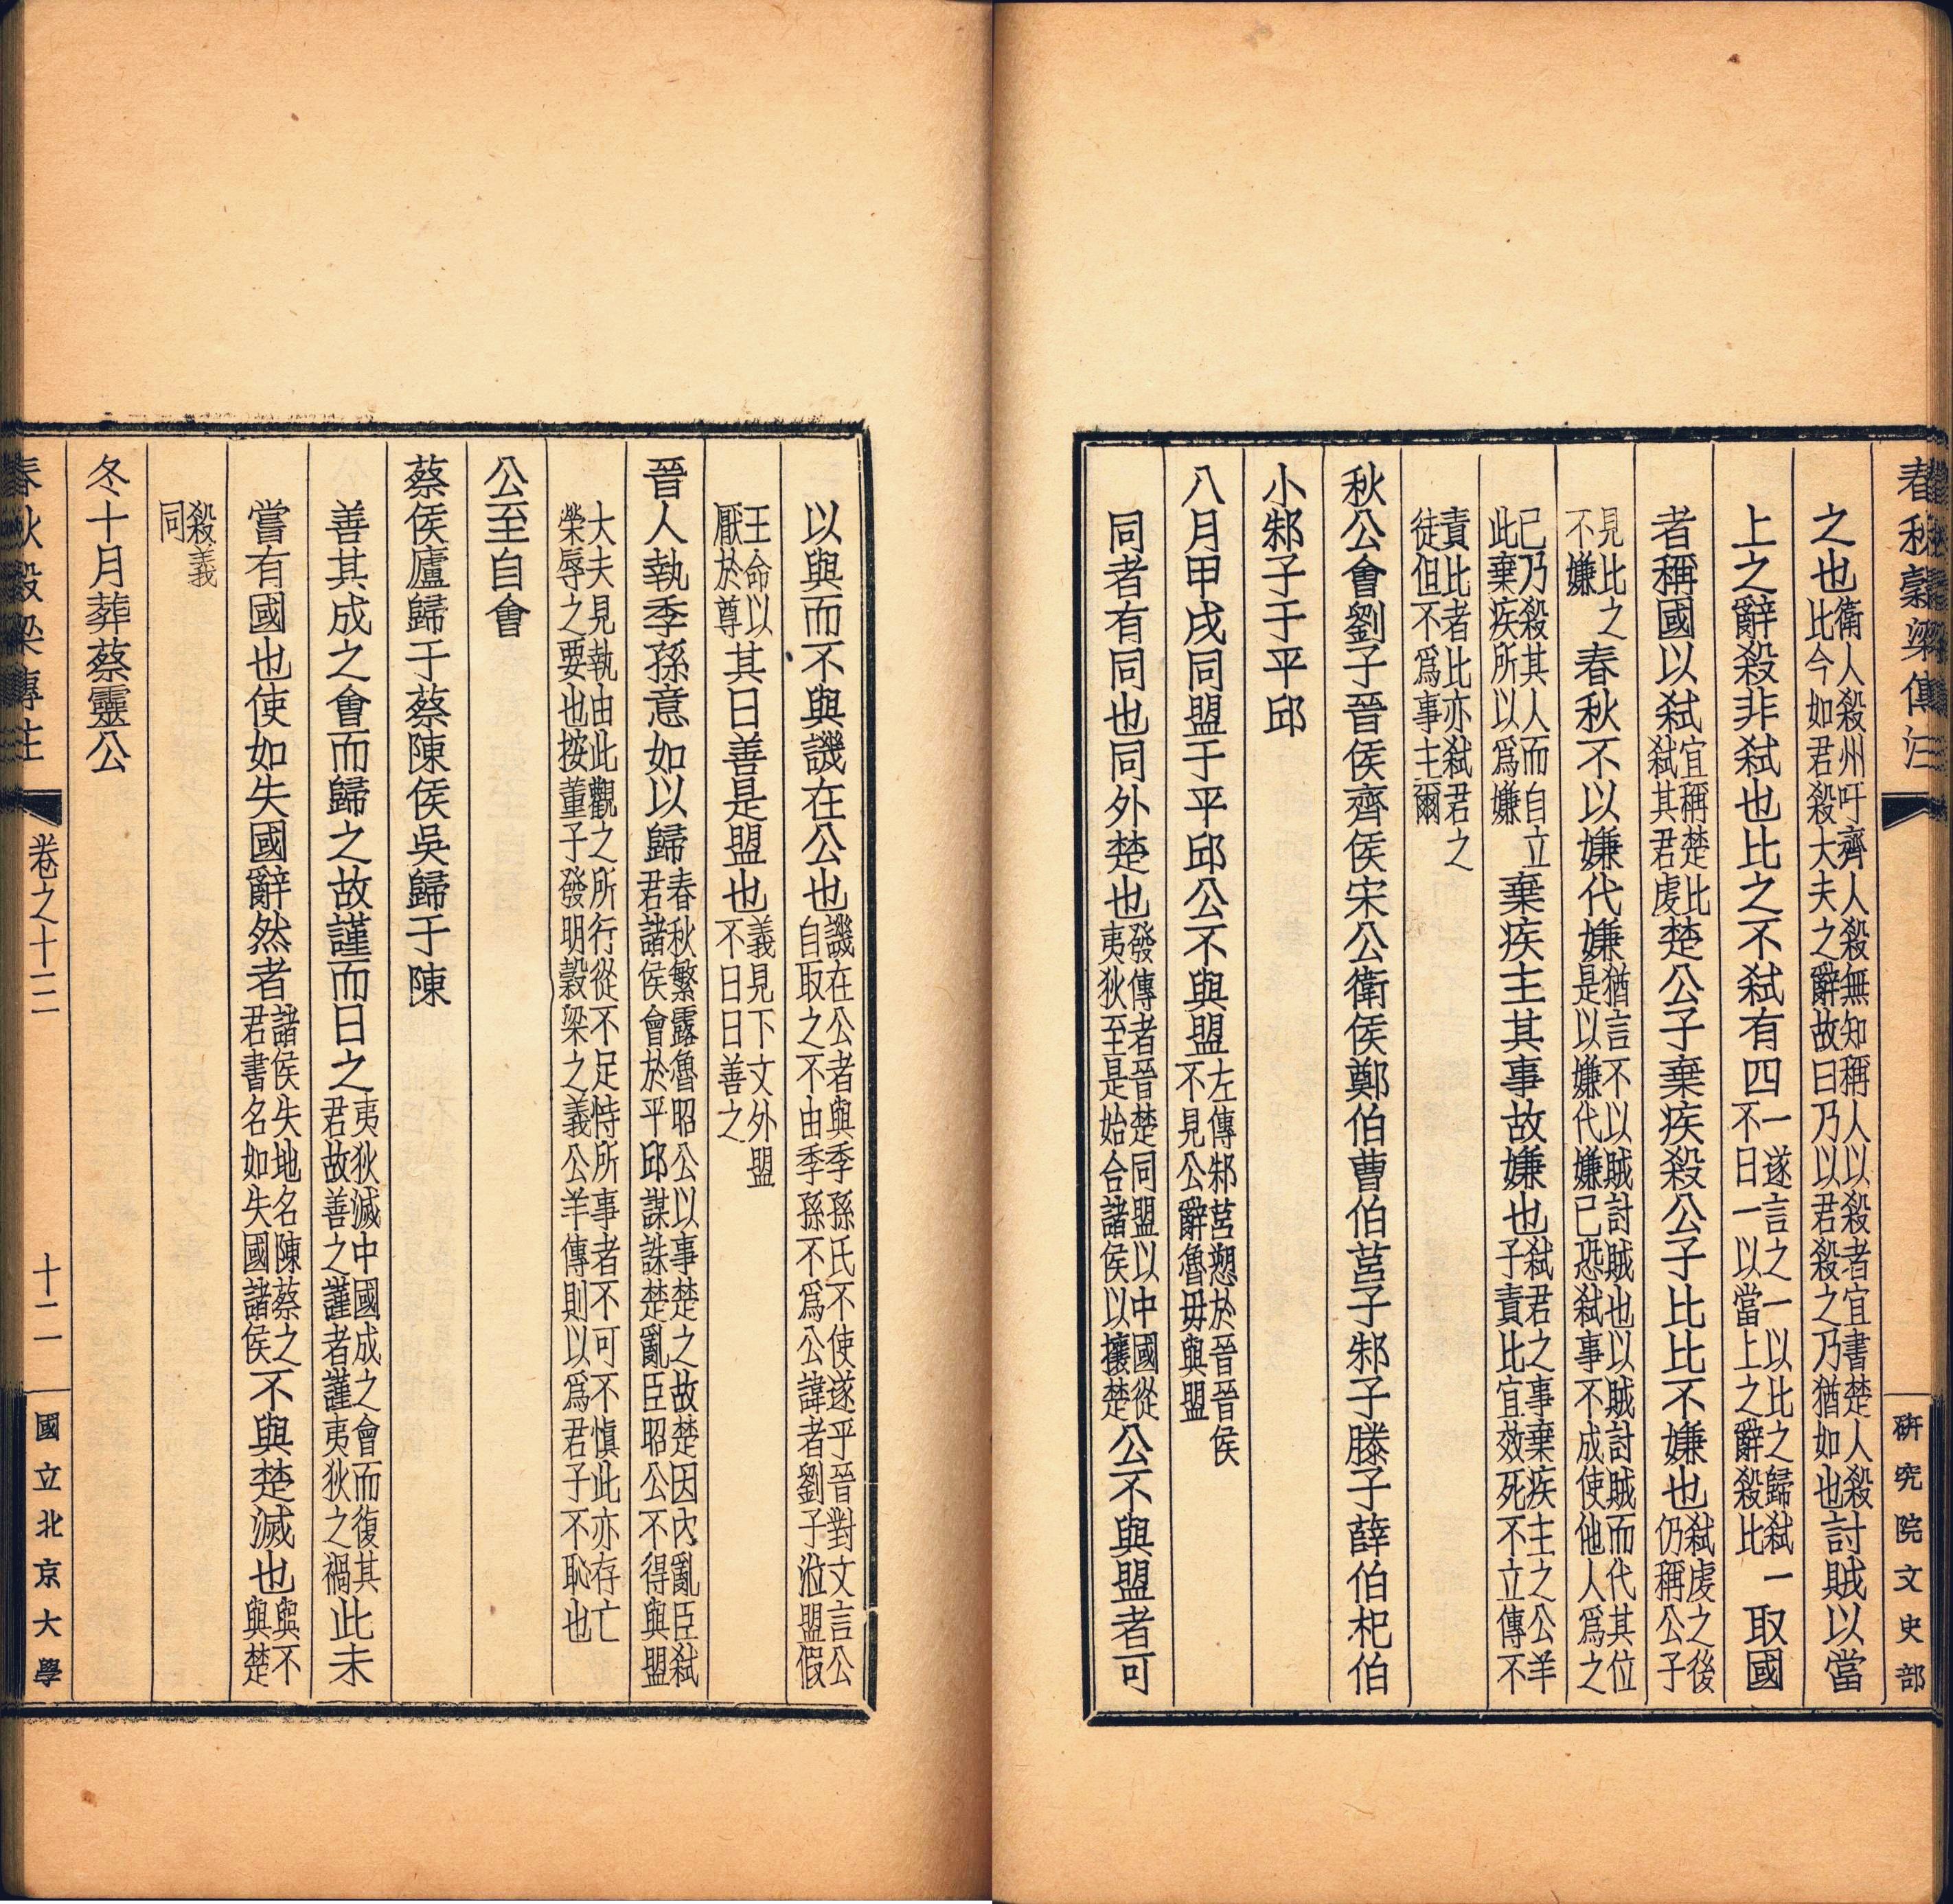 春秋穀梁傳注
研究院文史部
之也衛人殺州吁齊人殺無知稱人以殺者宜書楚人殺比今如君殺大夫之辭故曰乃以君殺之乃猶如也討賊以當
上之辭殺非弒也比之不弒有四一遂言之一以比之歸弒不日一以當上之辭殺比一取國
者稱國以弒宜稱楚比弒其君虔楚公子棄疾殺公子比比不嫌也弒虔之後仍稱公子
見比之不嫌春秋不以嫌代嫌猶言不以賊討賊也以賊討賊而代其位是以嫌代嫌已恐弒事不成使他人爲之
已乃殺其人而自立此棄疾所以爲嫌棄疾主其事故嫌也弒君之事棄疾主之公羊子責比宜效死不立傳不
責比者比亦弒君之徒但不爲事主爾
秋公會劉子晉侯齊侯宋公衛侯鄭伯曹伯莒子邾子滕子薛伯杞伯
小邾子于平邱
八月甲戌同盟于平邱公不與盟左傳邾莒愬於晉晉侯不見公辭魯毋與盟
同者有同也同外楚也發傳者晉楚同盟以中國從夷狄至是始合諸侯以攘楚公不與盟者可
以與而不與譏在公也譏在公者與季孫氏不使遂乎晉對文言公自取之不由季孫不爲公諱者劉子涖盟假
王命以厭於尊其日善是盟也義見下文外盟不日日善之
晉人執季孫意如以歸春秋繁露魯昭公以事楚之故楚因內亂臣弒君諸侯會於平邱謀誅楚亂臣昭公不得與盟
大夫見執由此觀之所行從不足恃所事者不可不慎此亦存亡榮辱之要也按董子發明穀梁之義公羊傳則以爲君子不恥也
公至自會
蔡侯廬歸于蔡陳侯吳歸于陳
善其成之會而歸之故謹而日之夷狄滅中國成之會而復其君故善之謹者謹夷狄之禍此未
嘗有國也使如失國辭然者諸侯失地名陳蔡之君書名如失國諸侯不與楚滅也與不與楚
殺義同
冬十月葬蔡靈公
春秋穀梁傳注
卷之十三
十二
國立北京大學